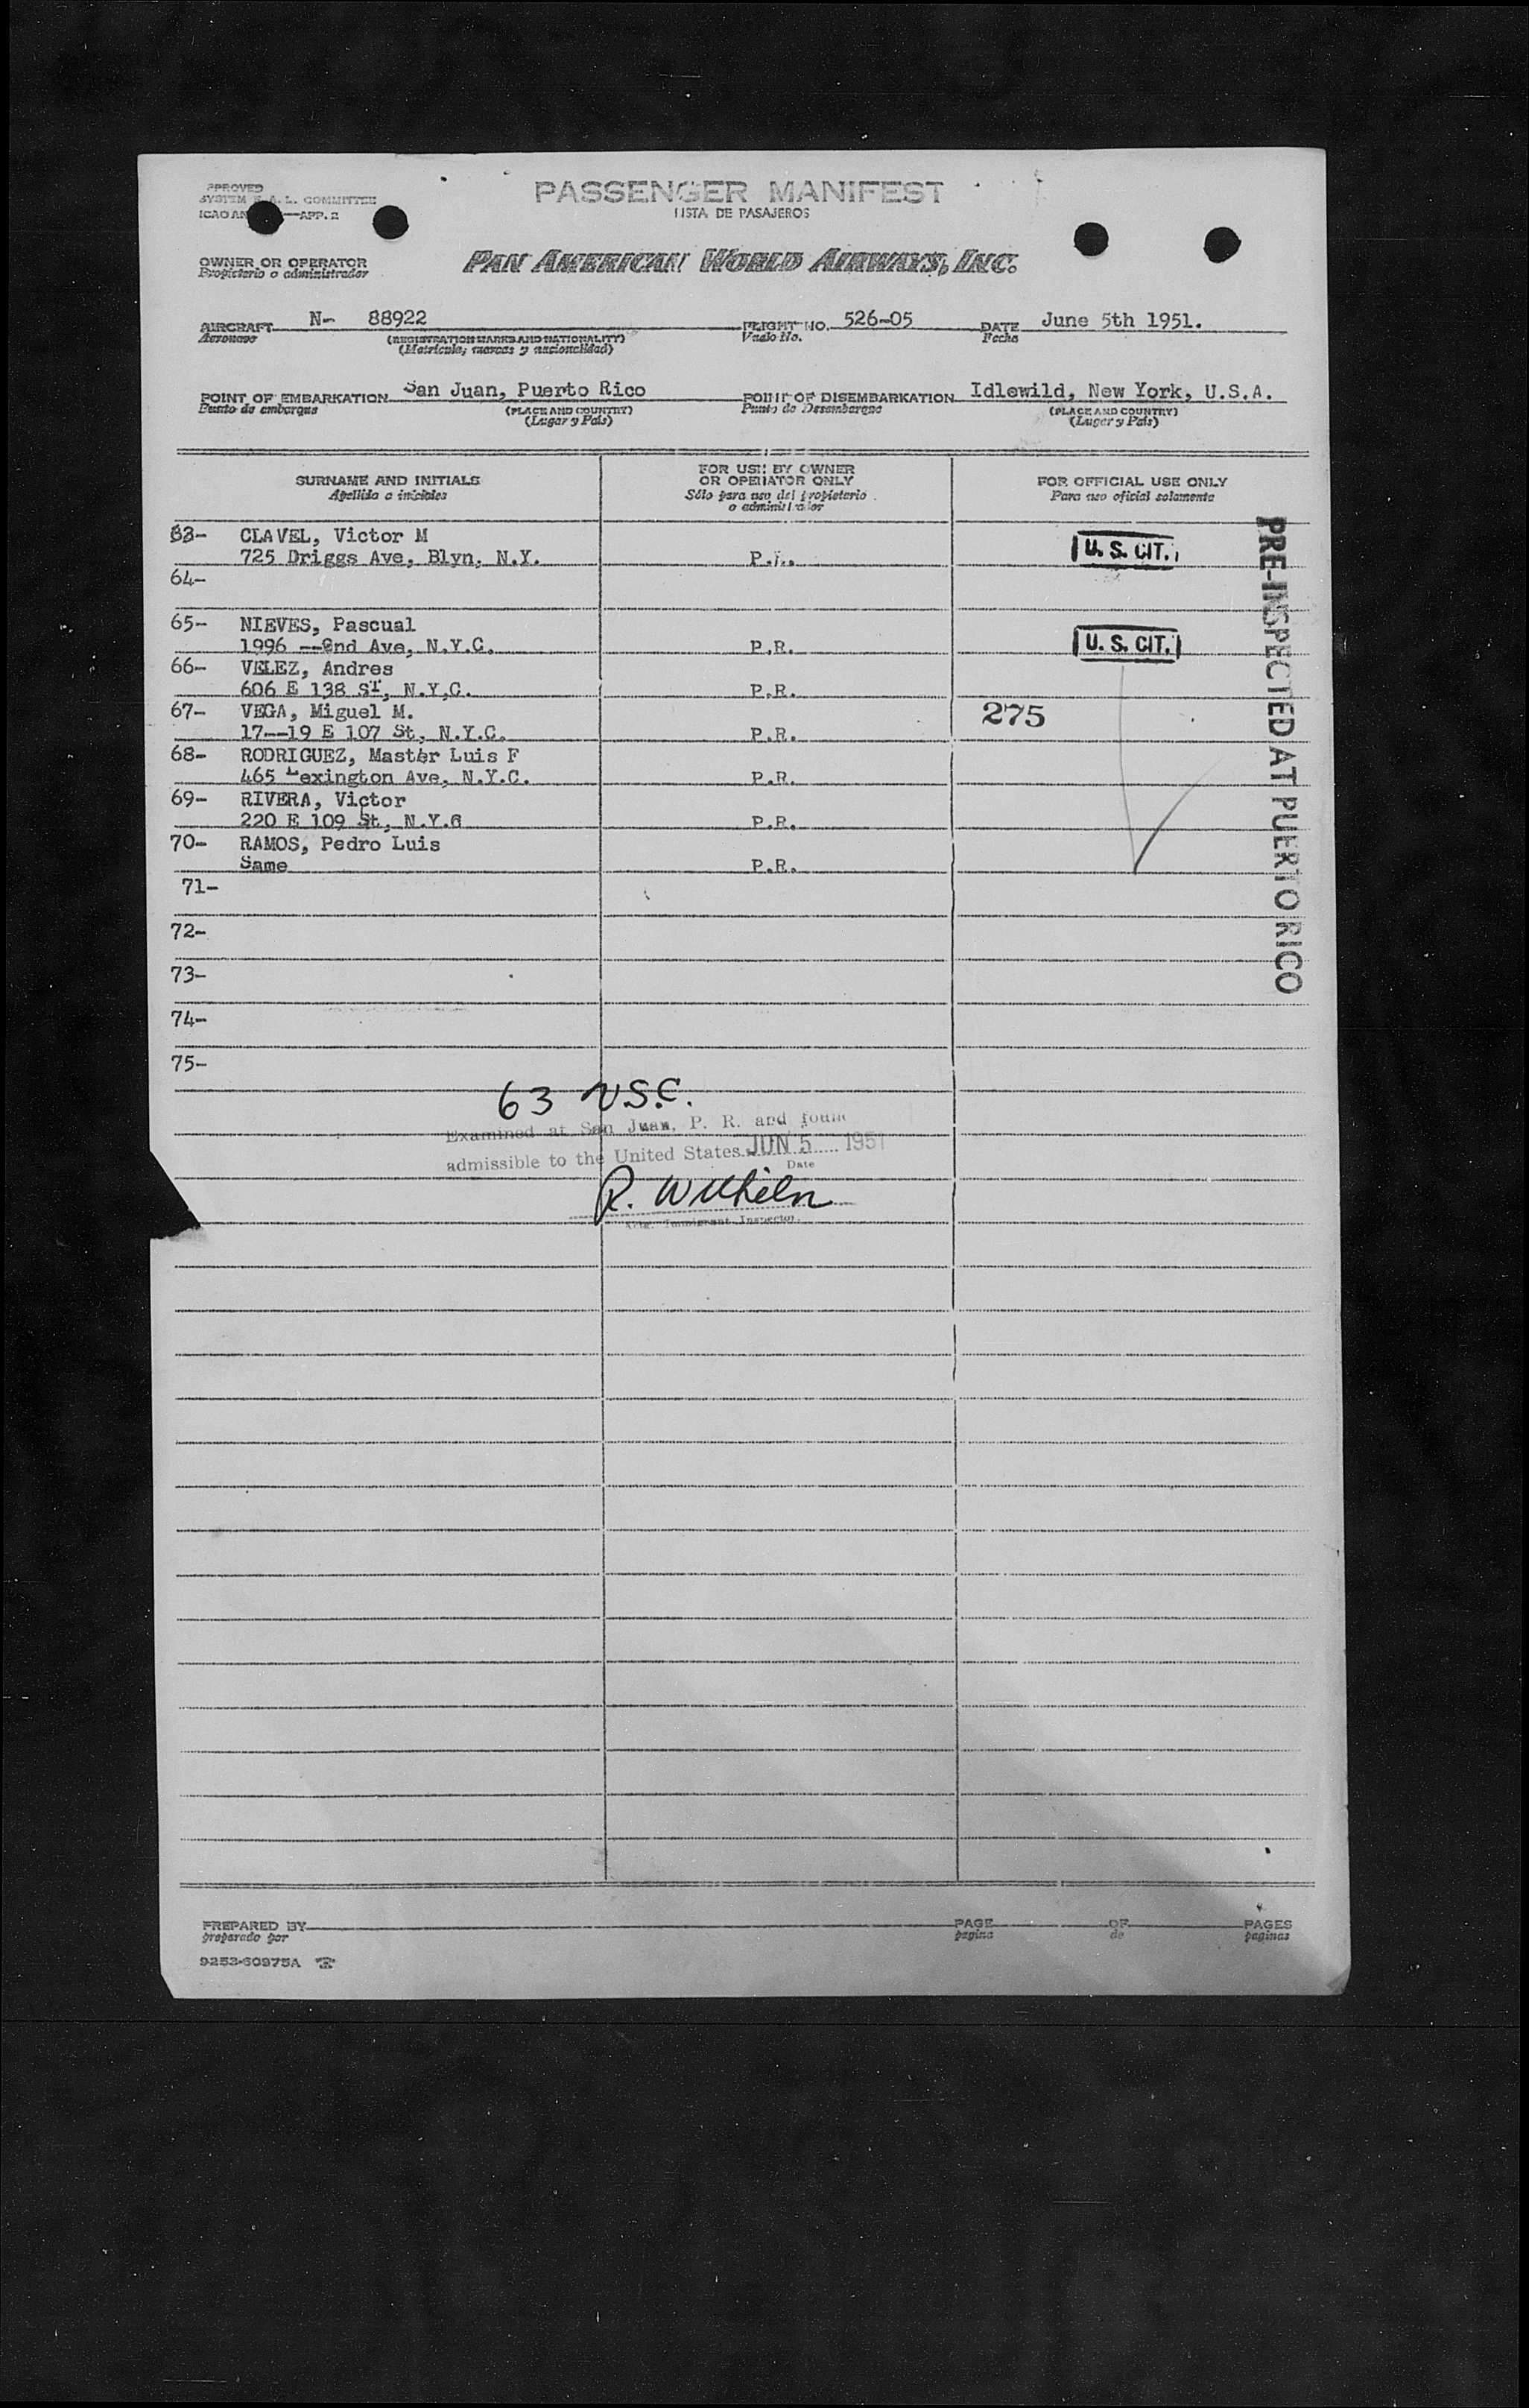 PASSENGER MANIFEST
LISTA DE PASAJEROS
APPROVED
SYSTEM F.A.L. COMMITTEE
ICAO AN —APP. 2
OWNER OR OPERATOR
Propietario o administrador
PAN AMERICAN WORLD AIRWAYS, INC.
AIRCRAFT N- 88922 FLIGHT NO. 526-05 DATE June 5th 1951.
Aeronave (REGISTRATION MARKS AND NATIONALITY) Vuelo No. Fecha
(Matricula, marcas y nacionalidad)
POINT OF EMBARKATION San Juan, Puerto Rico POINT OF DISEMBARKATION Idlewild, New York, U.S.A.
Punto de embarque (PLACE AND COUNTRY) Punto de Desembarque (PLACE AND COUNTRY)
(Lugar y País) (Lugar y País)
SURNAME AND INITIALS FOR USE BY OWNER OR OPERATOR ONLY FOR OFFICIAL USE ONLY
Apellido e iniciales Sólo para uso del propietario o administrador Para uso oficial solamente
63- CLAVEL, Victor M
725 Driggs Ave, Blyn, N.Y. P.R. U. S. CIT.
64-
65- NIEVES, Pascual
1996 --2nd Ave, N.Y.C. P.R. U. S. CIT.
66- VELEZ, Andres
606 E 138 St, N.Y.C. P.R.
67- VEGA, Miguel M. 275
17--19 E 107 St, N.Y.C. P.R.
68- RODRIGUEZ, Master Luis F
465 Lexington Ave, N.Y.C. P.R.
69- RIVERA, Victor
220 E 109 St, N.Y.C P.R.
70- RAMOS, Pedro Luis
Same P.R.
71-
72-
73-
74-
75-
PRE-INSPECTED AT PUERTO RICO
63 U.S.C.
Examined at San Juan, P. R. and found
admissible to the United States JUN 5 1951
Date
R. Wilhelm
Immigrant Inspector.
PREPARED BY PAGE OF PAGES
preparado por pagina de paginas
9253-60975A